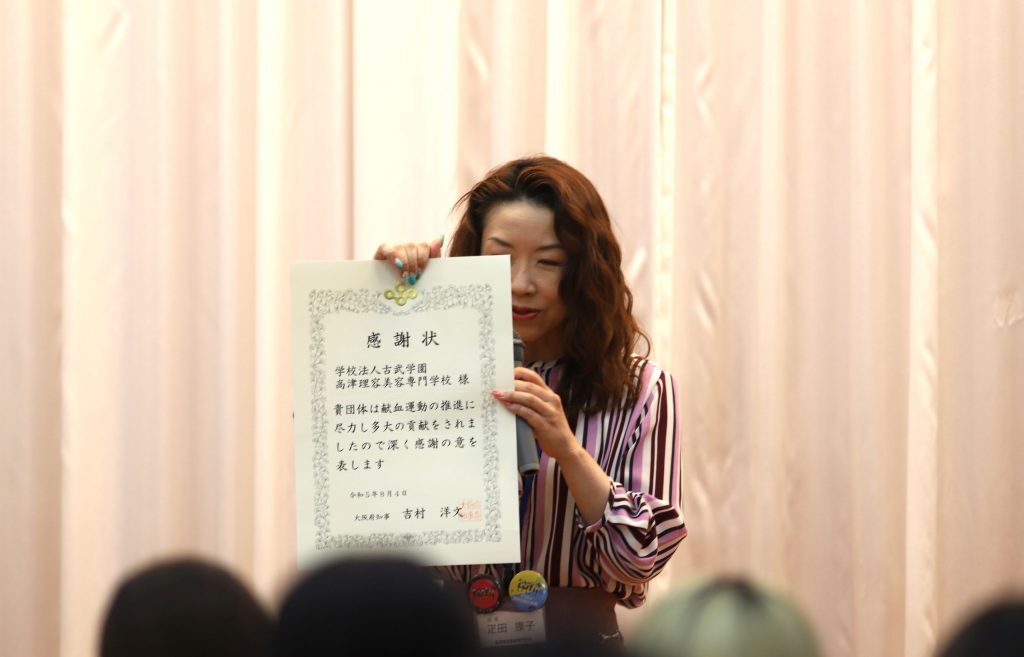 感謝状
学校法人古武学園
高津理容美容専門学校 様
貴団体は献血運動の推進に
尽力し多大の貢献をされま
したので深く感謝の意を
表します
令和5年8月4日
大阪府知事 吉村 洋文
疋田 康子